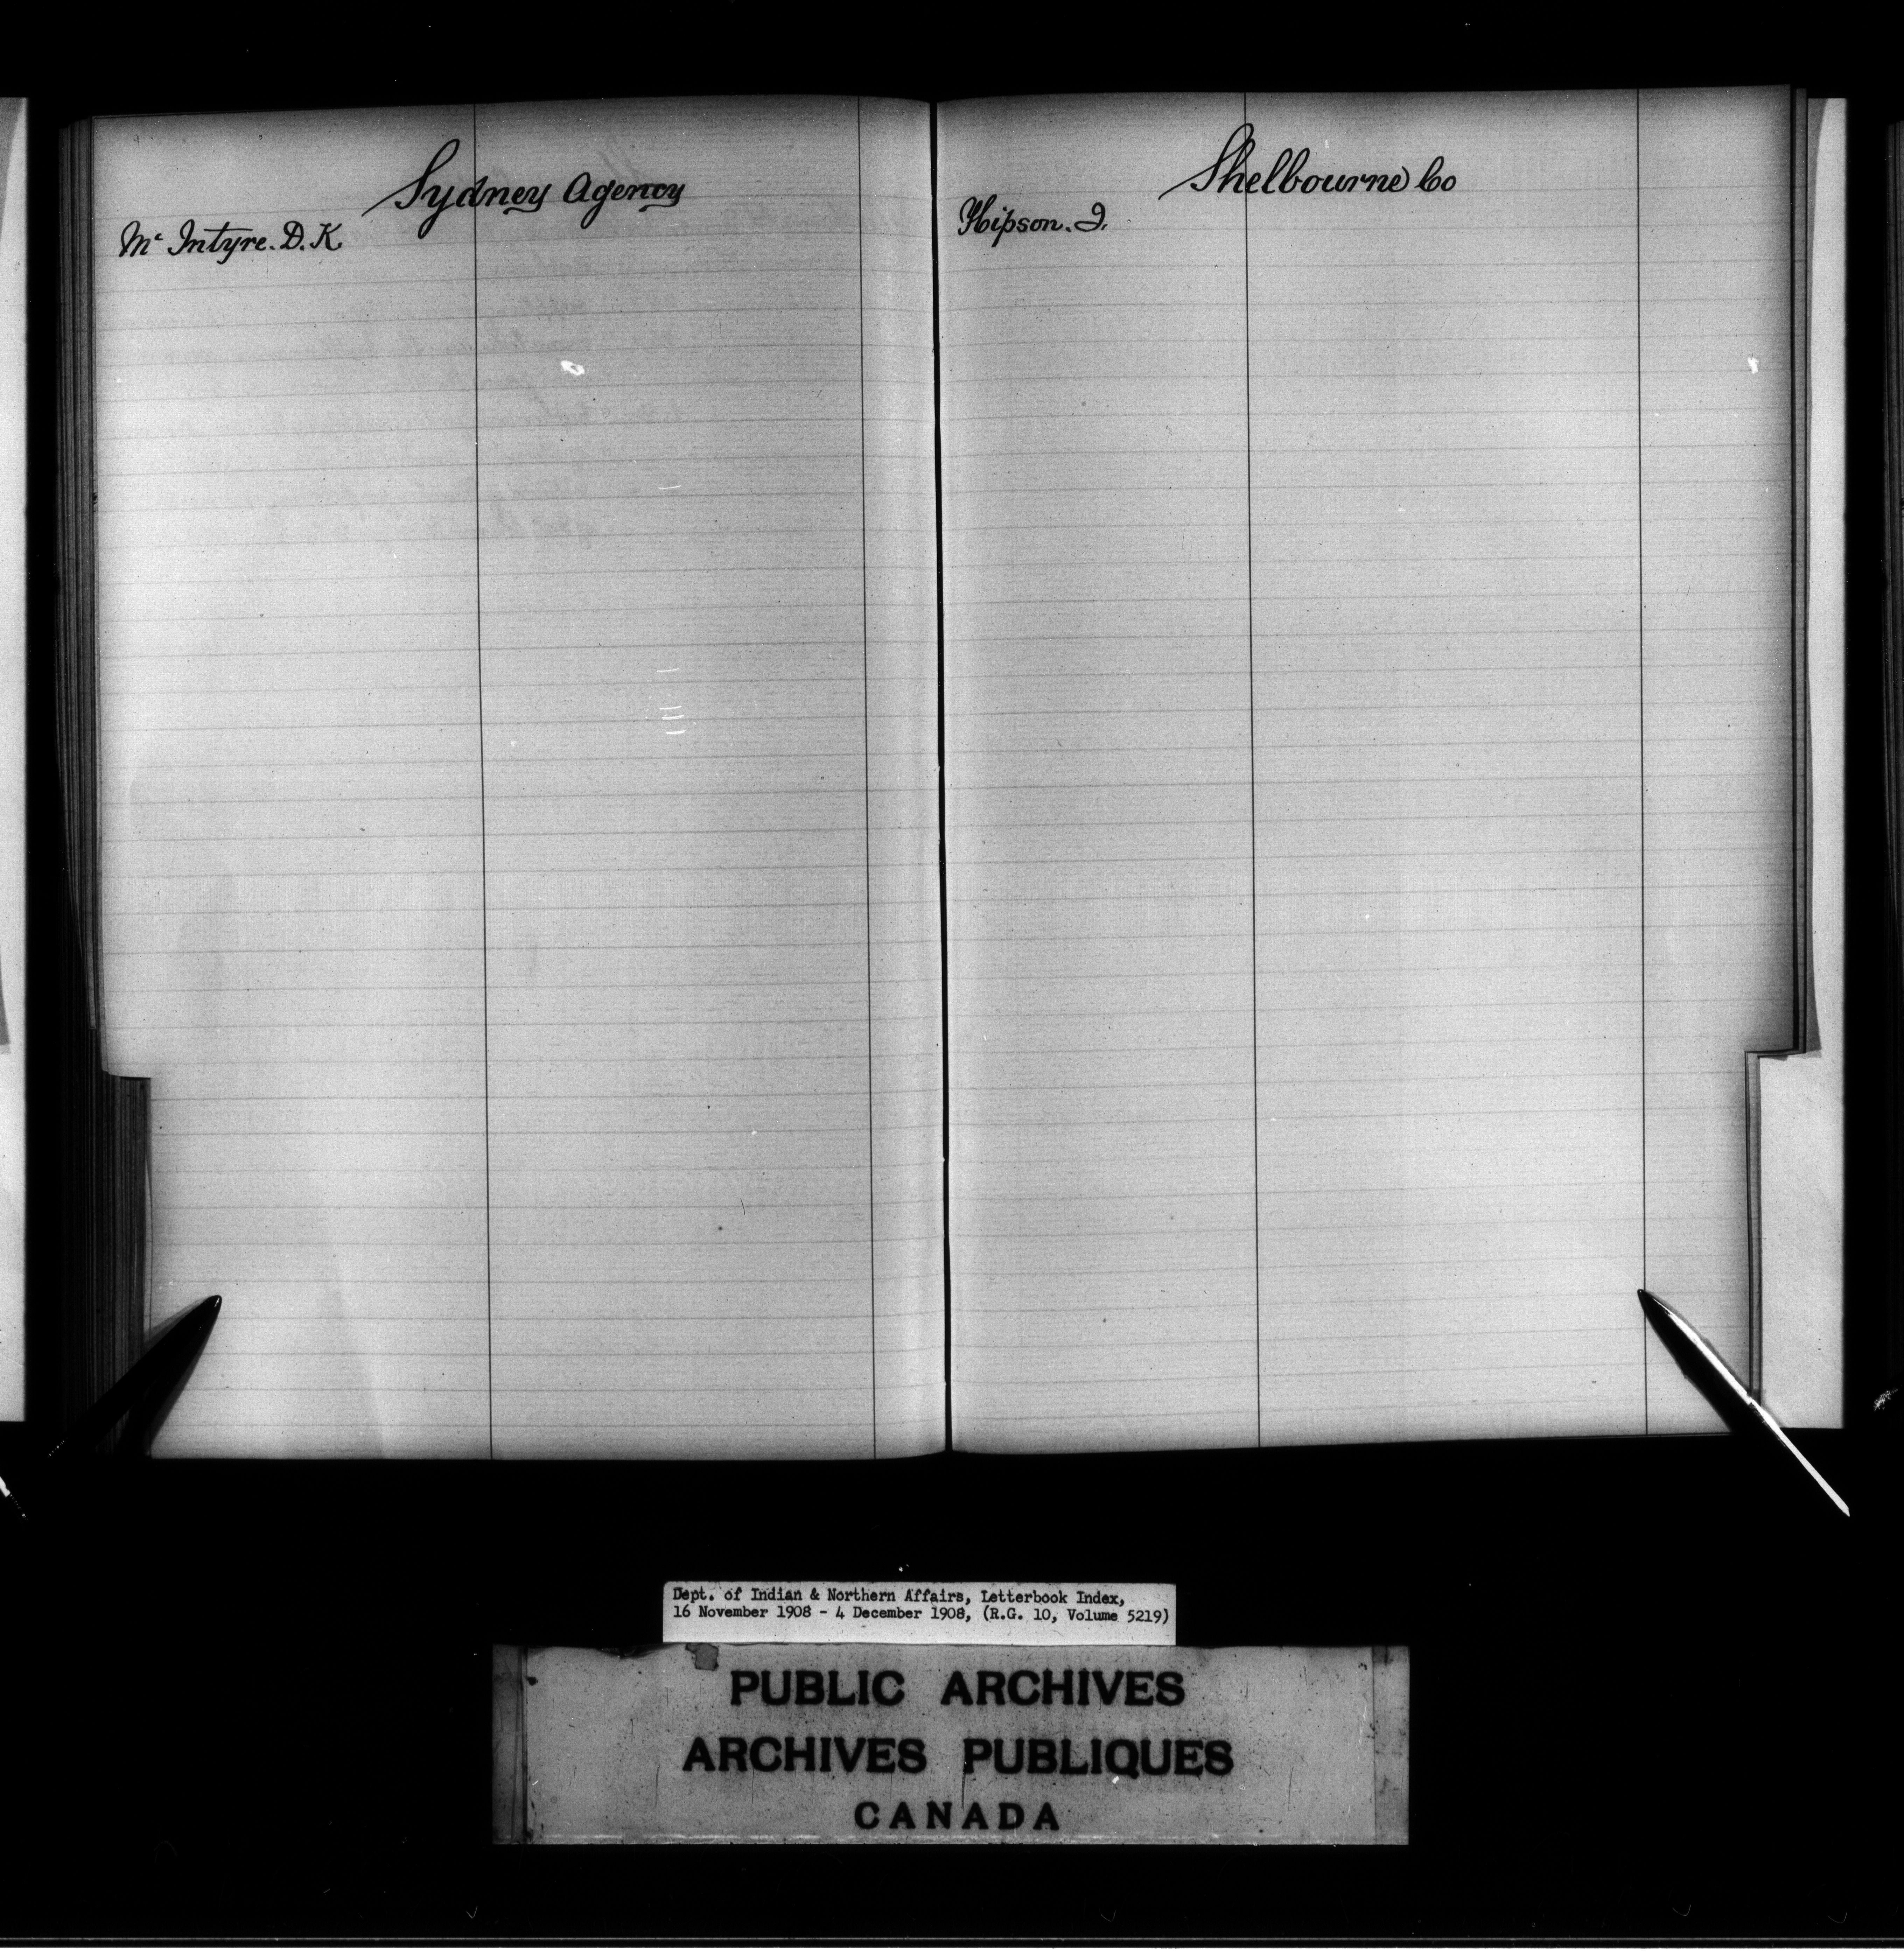 Sydney Agency
Mc Intyre. D. K
Shelbourne Co
Hipson. J.
Dept. of Indian & Northern Affairs, Letterbook Index,
16 November 1908 - 4 December 1908, (R.G. 10, Volume 5219)
PUBLIC ARCHIVES
ARCHIVES PUBLIQUES
CANADA